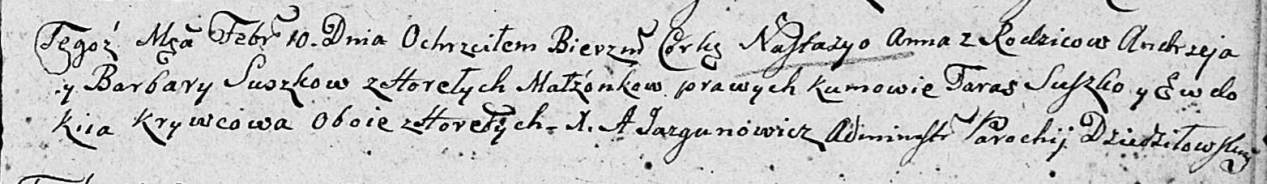 Tegoż Msca Febr 10. Dnia Ochrzciłem Bierzm Corkę Nastazyo Anna z Rodzicow Andrzeja
y Barbary Suszkow z Horełych Małżonkow prawych Kumowie Taras Suszko y Ewdo
kiia Krywcowa Oboie z Horełych = X. A Jazgunowicz Administr Parochij Dziedziłowskiey